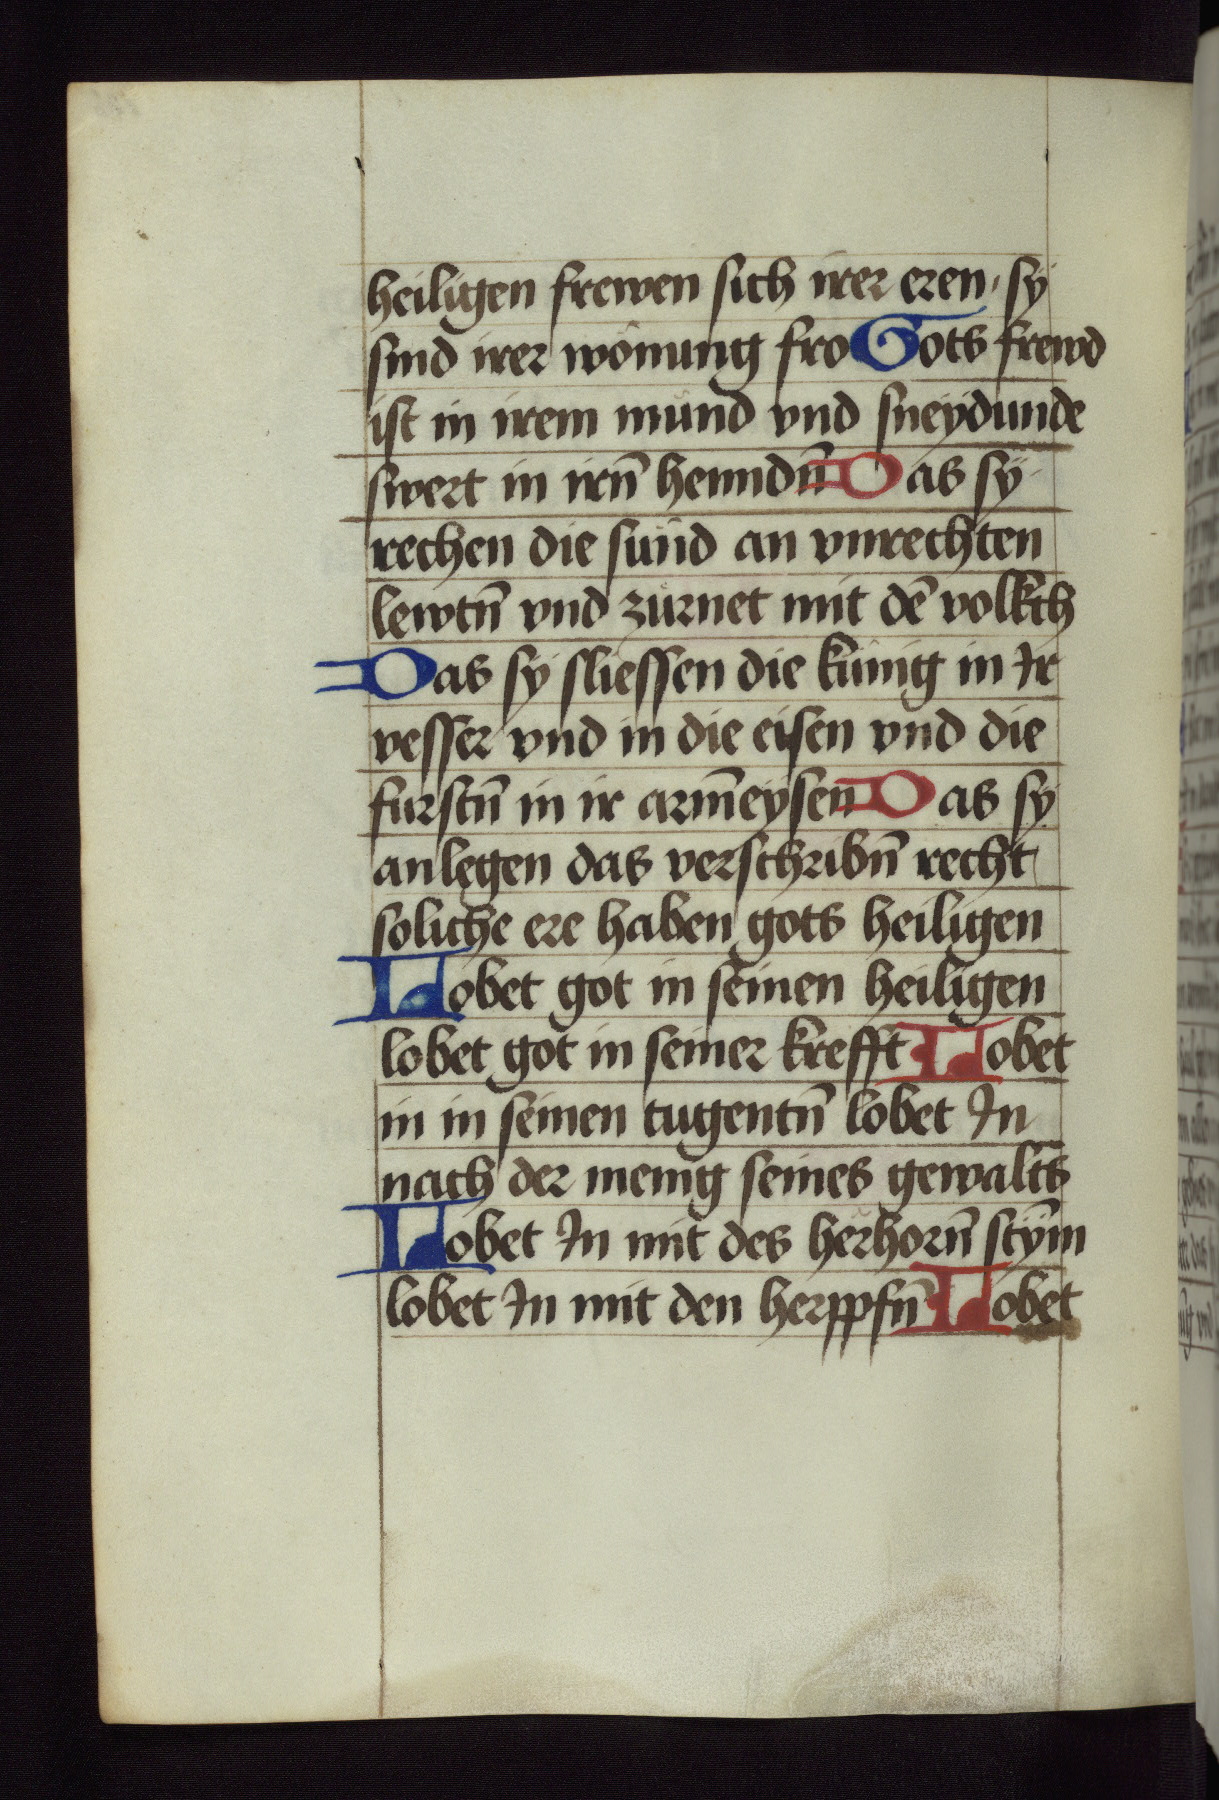 heiligen frewen sich irer eren · sy
sind irer wonung fro Gots frewd
ist in irem mund vnd sneydunde
swert in irn̄ henndn̄ Das sy
rechen die sünd an vnrechten
lewtn̄ vnd zürnet mit dē volkch
Das sy sliessen die künig in Ir
vesser vnd in die eisen vnd die
fürstn̄ in ir arm̄eysen Das sy
anlegen das verschribn̄ recht
soliche ere haben gots heiligen
Lobet got in seinen heiligen
lobet got in seiner krefft Lobet
in in seinen tugentn̄ lobet In
nach der menig seines gewalts
Lobet In mit des herhorn̄ stym̄
lobet In mit den herppfn̄ Lobet